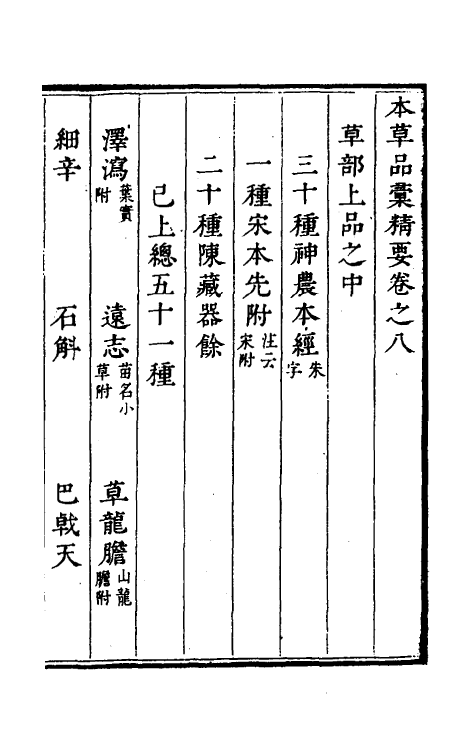 本草品彙精要卷之八
草部上品之中
三十種神農本經朱字
一種宋本先附注云宋附
二十種陳藏器餘
已上總五十一種
澤瀉葉實附　遠志苗名小草附　草龍膽山龍膽附
細辛　石斛　巴戟天